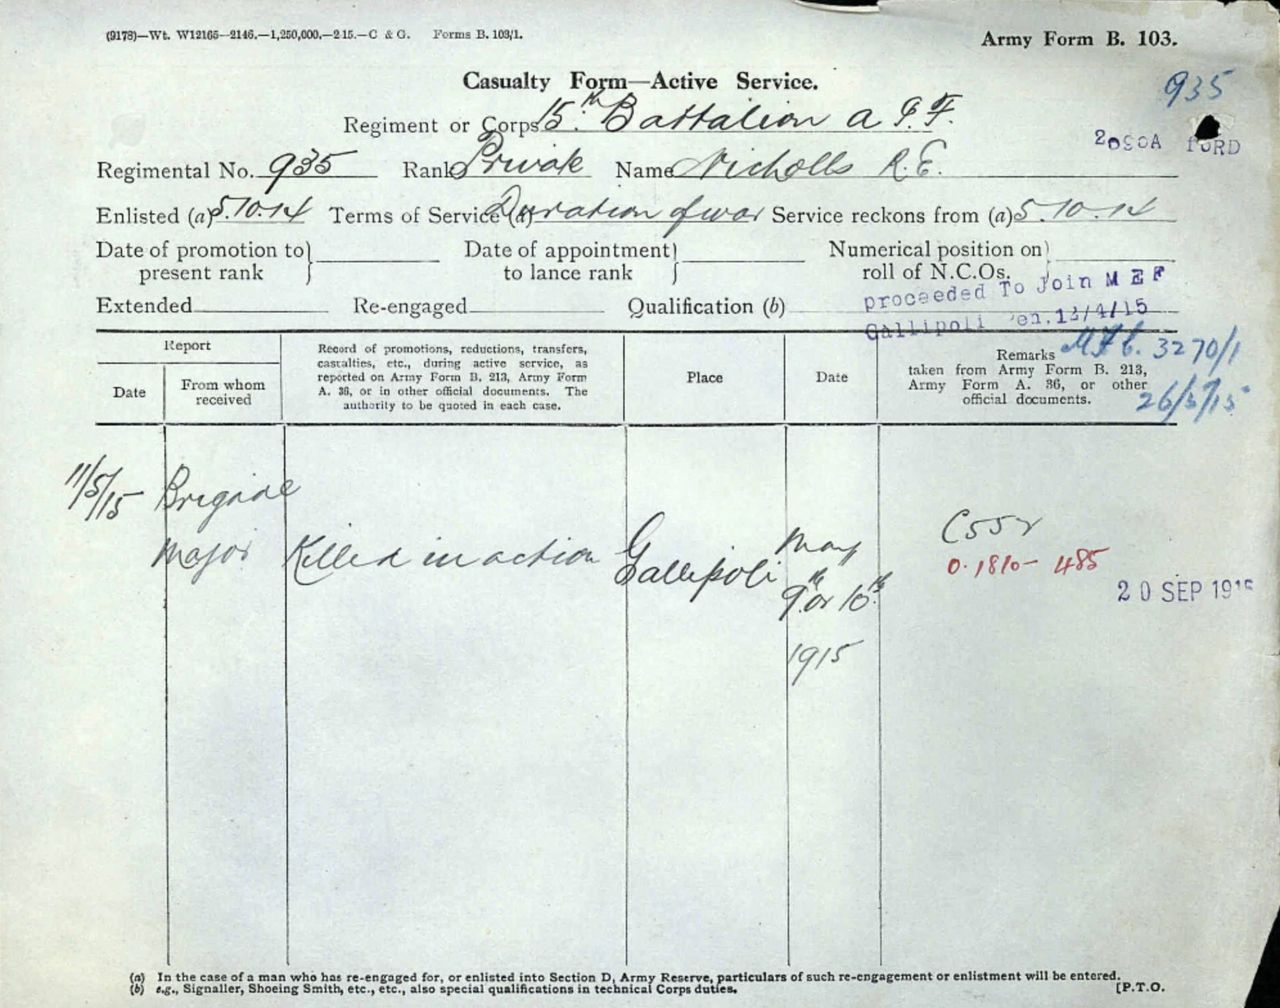 (9178)—Wt. W12165—2146.—1,250,000.—2-15.—C & G. Forms B. 103/1.
Army Form B. 103.
935
Casualty Form—Active Service.
Regiment or Corps 15th Battalion A I.F.
Regimental No. 935 Rank Private Name Nicholls R.E.
Enlisted (a) 5.10.14 Terms of Service (a) Duration of war Service reckons from (a) 5.10.14
Date of promotion to present rank
Date of appointment to lance rank
Numerical position on roll of N.C.Os.
proceeded To Join M E F
Extended Re-engaged Qualification (b)
Gallipoli 12/4/15
Report
Date
From whom received
Record of promotions, reductions, transfers,
casualties, etc., during active service, as
reported on Army Form B. 213, Army Form
A. 36, or in other official documents. The
authority to be quoted in each case.
Place
Date
Remarks
taken from Army Form B. 213,
Army Form A. 36, or other
official documents.
3270/1
11/5/15 Brigade
Major Killed in action Gallipoli May
9th or 10th
1915
0.1810- 485
20 SEP
(a) In the case of a man who has re-engaged for, or enlisted into Section D, Army Reserve, particulars of such re-engagement or enlistment will be entered.
(b) e.g., Signaller, Shoeing Smith, etc., etc., also special qualifications in technical Corps duties.
[P.T.O.